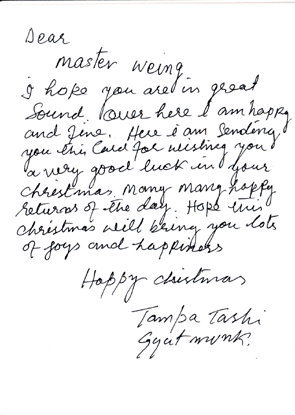 Dear
master weing
i hope you are in great
Sound. Over here i am happy
and fine. Here i am Sending
you this Card for wishing you
a very good luck in your
christmas. many many happy
returns of the day. Hope this
christmas will bring you lots
of joys and happiness
Happy christmas
Tampa Tashi
Gyut monk.